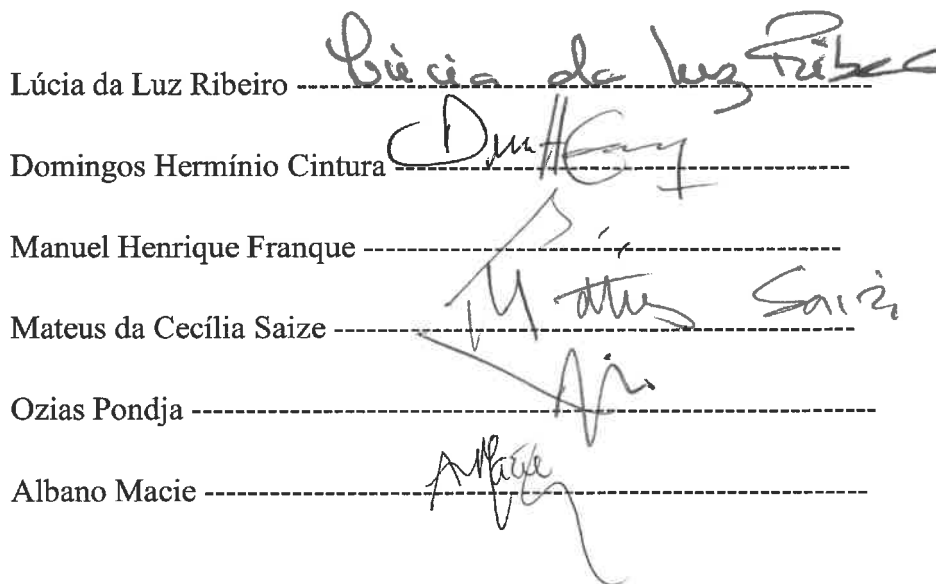 Lúcia da Luz Ribeiro ---------- Lúcia da Luz Ribeiro
Domingos Hermínio Cintura ----------
Manuel Henrique Franque ----------
Mateus da Cecília Saize ---------- Mateus Saize
Ozias Pondja ----------
Albano Macie ---------- AMacie